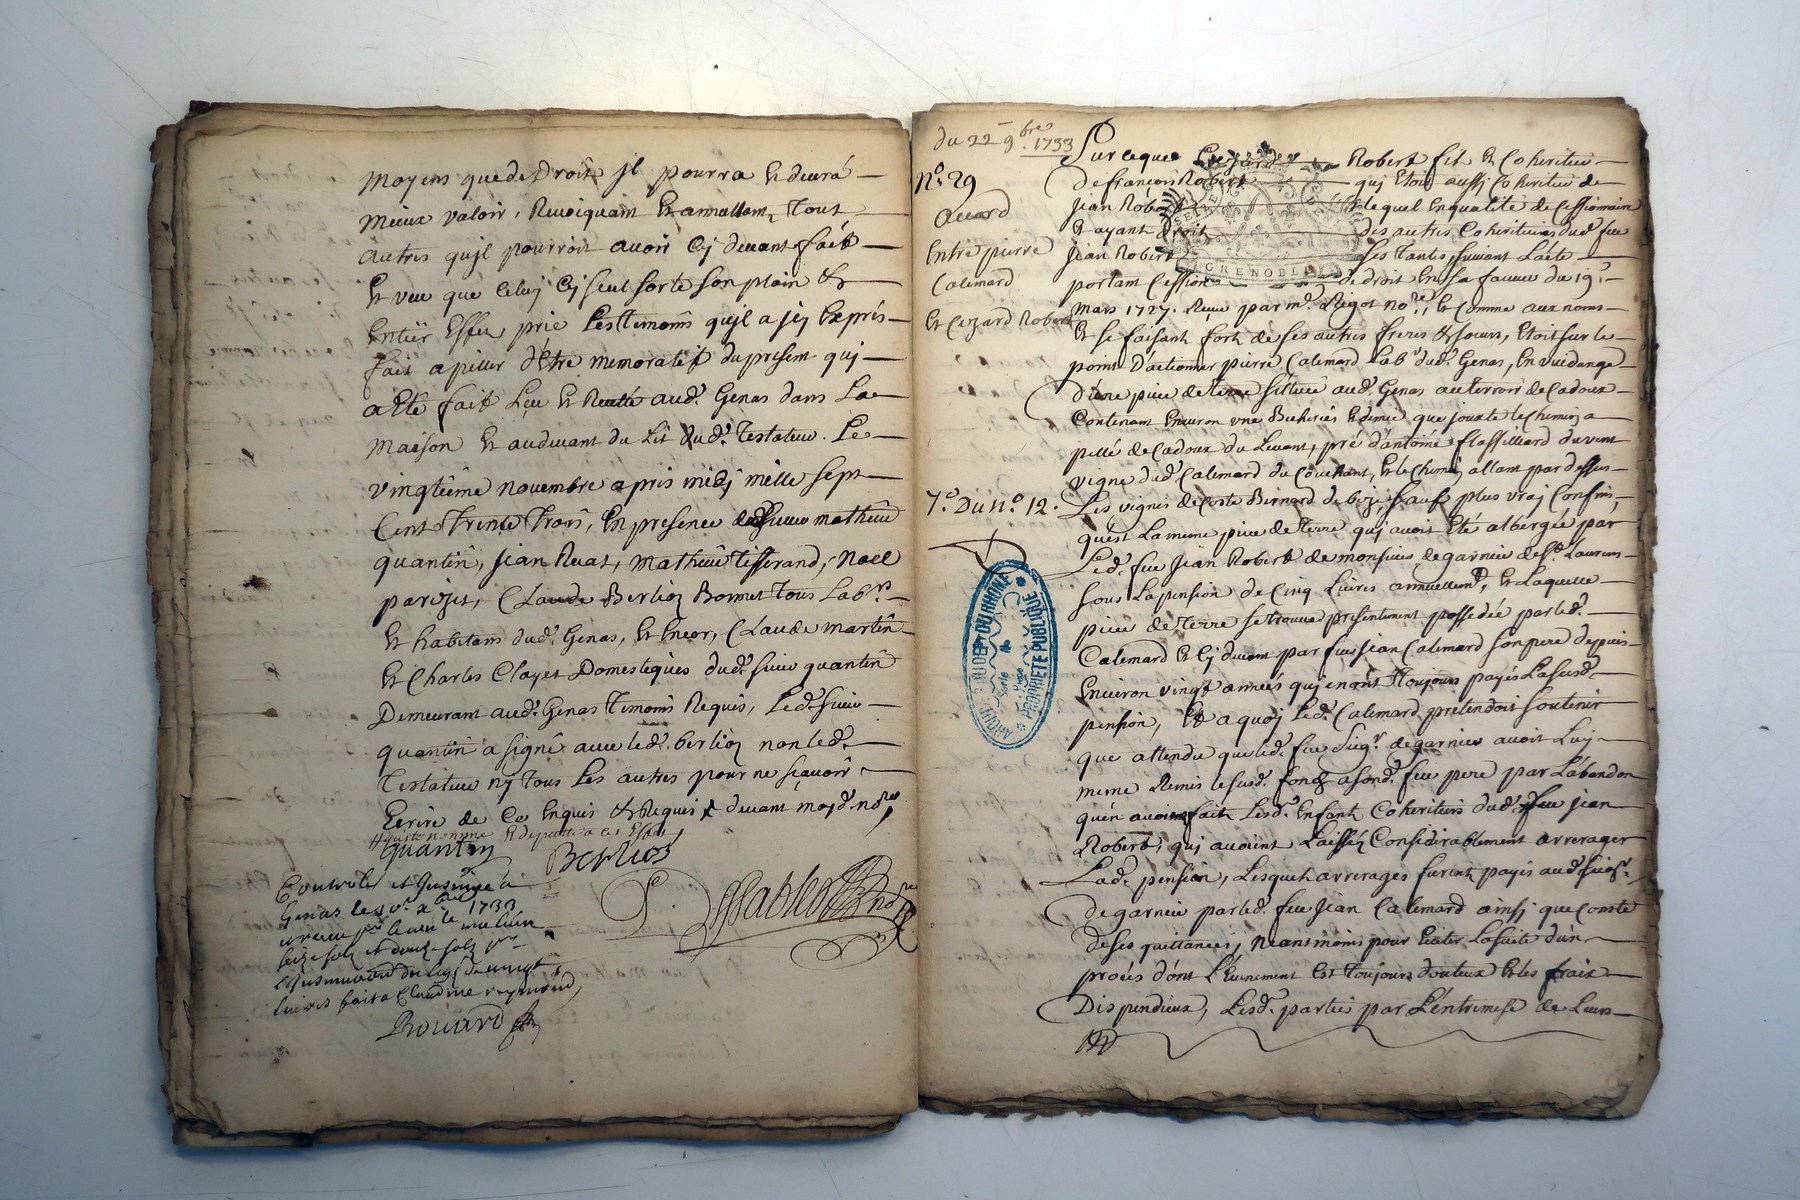 moyens que de droit jl pourra et devrá
mieux valoir, Revoiquant et annullant, tout
autres qu'jl pourroit avoir cy devant fait
Et veu que celuy cy seul sorte son plain &
Entier Effet, prie les temoins qu'jl a jcy Expres
fait apeller d'être memoratif du present qui
a Eté fait Lue Et Recité aud. Genas dans La
maison Et audevant du Lit dud. Testateur. Le
vingtiême novembre apris midy mille sept
Cent Trente Trois, En presence de Sieur mathieu
quantin, Jean Ruat, Mathieu Tisserand, Noel
parizet, Claude Berlioz Bonnet Tous Lab.rs
Et habitans dud. Genas, Et Encor, Claude martin
Et Charles Clayet Domestiques dud. sieur quantin
Demeurant aud. Genas Temoins Requis, Led. sieur
quantin a signé avec led. berlioz non led.
Testateur ny Tous Les autres pour ne sçavoir
Ecrire de Ce Enquis & Requis devant moyd. no.re
quantin
Berlioz
Controllé et Jnsinué à
Genas le
1733
seize solz et douze solz
livres fait a Claudine reymond
Rouard
du 22 9.bre 1733
N.o 29
accord
Entre pierre
Calemard
Et Cezard Robert
7.o Du n.o 12.
Sur ce que Cezard Robert fils et Coheritier
de francois Robert qui Etoit aussi Coheritier de
Jean Robert lequel En qualité de Cessionnaire
Et ayant droit des autres Coheritiers dud. feu
Jean Robert ses Tantes, suivant L'acte
GRENOBLE
portant Cession de droit En sa faveur du 19.e
mars 1727. Reçu par m.e Rigot no.re, Et Comme aux noms
Et se faisant fort de ses autres freres & soeurs, Etoit sur le
point D'actionner pierre Calemard Lab.r dud. Genas, En vuidange
d'une piece de terre sittuée aud. Genas au terroir de Cadoux
Contenant Environ une Bicherée Et demie que jouxte le Chemin a
pellé de Cadoux du Levant, pré d'antoine flassilliard du vent
vigne dud. Calemard du Couchant, Et le Chemin allant par dessus
Les vignes de Coste Bernard de bize, sauf plus vray Confins,
qu'est La meme piece de Terre qui avoit Eté albergée par
Led. feu Jean Robert de monsieur de garnier de S.t Laurens
sous La pension de Cinq Livres annuellem.t, Et Laquelle
piece de Terre se trouve presentement possedée par led.
Calemard Et Cy devant par feu Jean Calemard son pere depuis
Environ vingt années qui en ont Toujours payés La susd.
pension, Et a quoy Led. Calemard pretendoit soutenir
que attendu que led. feu Seig.r de garnier avoit Luy
meme Remis le susd. fondz a sond. feu pere par L'abandon
qu'en avoint fait Lesd. Enfant Coheritiers dud. feu Jean
Robert, qui avoient Laissés Considerablement arrerager
Lad. pension, Lesquels arrerages furent payés aud. Seig.r
de garnier par led. feu Jean Calemard ainsi que Conste
de ses quittances, Neantmoins pour Eviter La suite d'un
procés d'ont L'Evenement Est toujours douteux Et les frais
Dispendieux, Lesd. parties par L'entremise de Leurs
DU RHONE
PROPRIÉTÉ PUBLIQUE